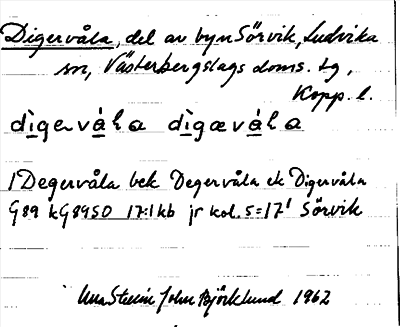 Digervåla, del av byn Sörvik, Ludvika
sn, Västerbergslags doms. tg,
Kopp. l.
dìgervála dìgævála
1 Degervåla bek Degervåla ek Digervåla
G89 kG89SO 17:1 kb jr kol. 5=17¹ Sörvik
John Björklund 1962